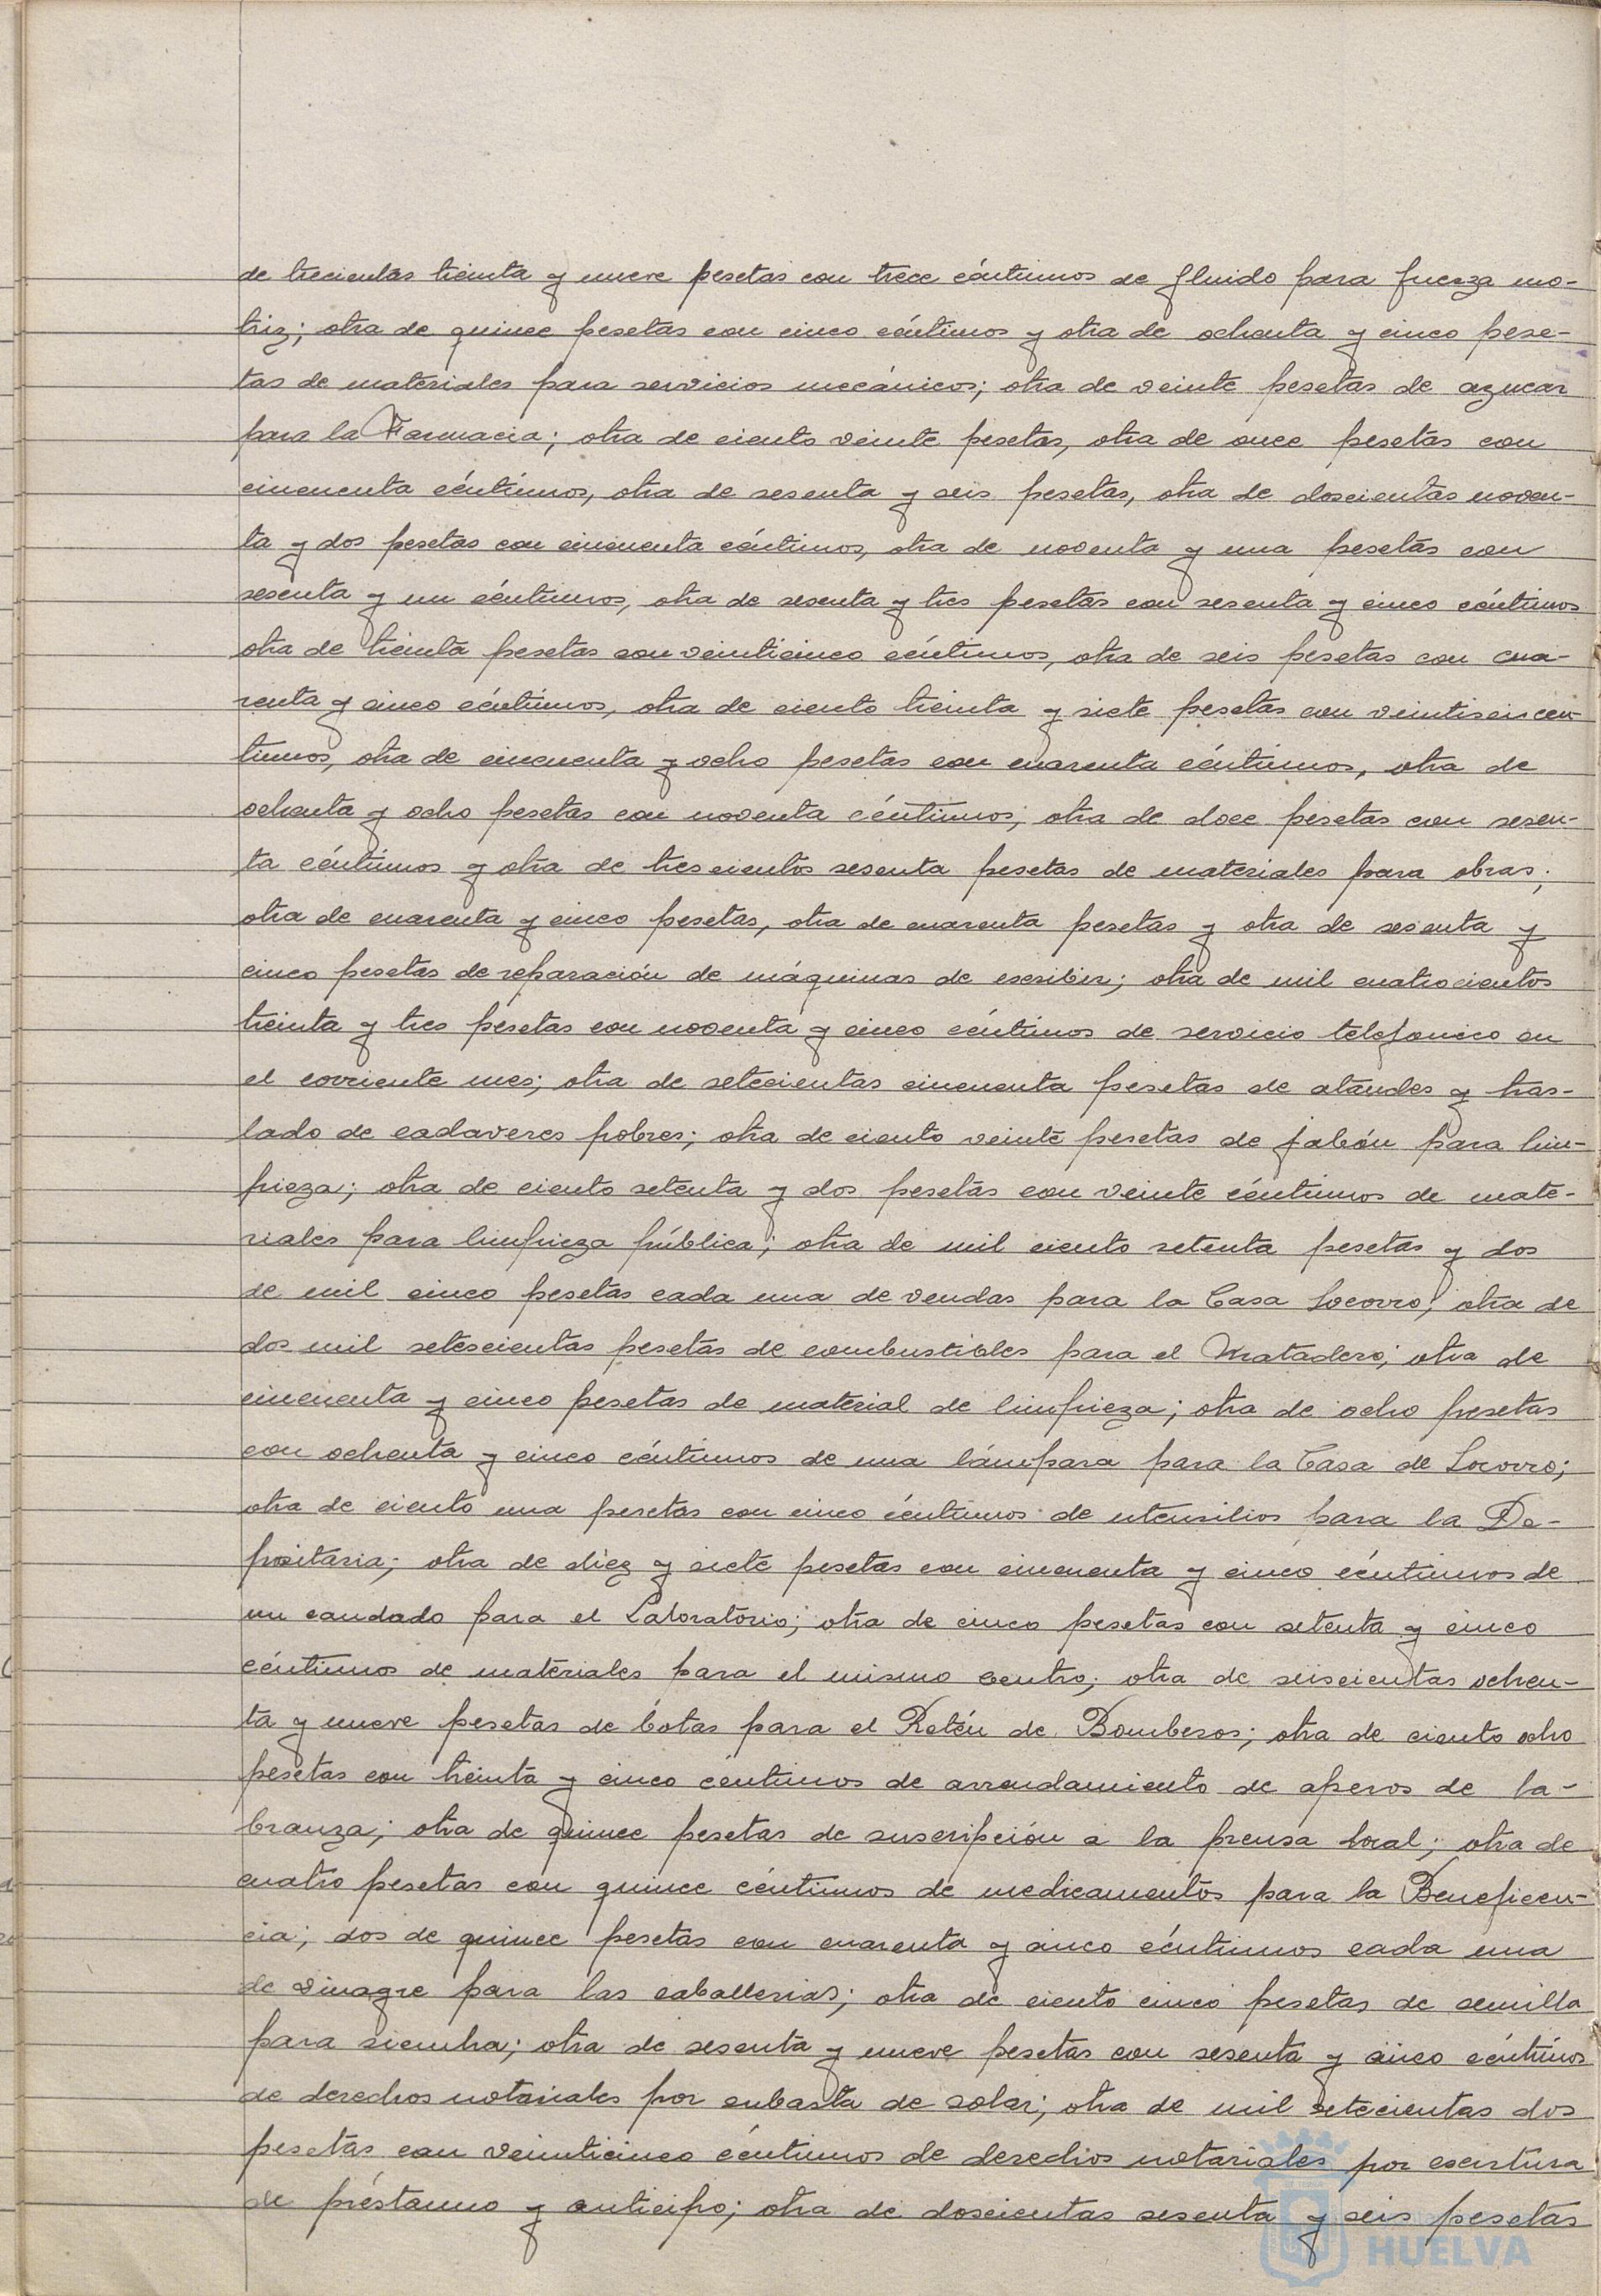 de trecientas treinta y nueve pesetas con trece céntimos de fluido para fuerza mo-
triz; otra de quince pesetas con cinco céntimos y otra de ochenta y cinco pese-
tas de materiales para servicios mecánicos; otra de veinte pesetas de azucar
para la Farmacia; otra de ciento veinte pesetas, otra de once pesetas con
cincuenta céntimos, otra de sesenta y seis pesetas, otra de doscientas noven-
ta y dos pesetas con cincuenta céntimos, otra de noventa y una pesetas con
sesenta y un céntimos, otra de sesenta y tres pesetas con sesenta y cinco céntimos
otra de treinta pesetas con veinticinco céntimos, otra de seis pesetas con cua-
renta y cinco céntimos, otra de ciento treinta y siete pesetas con veintiseis cen-
timos, otra de cincuenta y ocho pesetas con cuarenta céntimos, otra de
ochenta y ocho pesetas con noventa céntimos; otra de doce pesetas con sesen-
ta céntimos y otra de trescientos sesenta pesetas de materiales para obras;
otra de cuarenta y cinco pesetas, otra de cuarenta pesetas y otra de sesenta y
cinco pesetas de reparación de máquinas de escribir; otra de mil cuatrocientos
treinta y tres pesetas con noventa y cinco céntimos de servicio telefonico en
el corriente mes; otra de setecientas cincuenta pesetas de ataudes y tras-
lado de cadaveres pobres; otra de ciento veinte pesetas de jabón para lim-
pieza; otra de ciento setenta y dos pesetas con veinte céntimos de mate-
riales para limpieza pública; otra de mil ciento setenta pesetas y dos
de mil cinco pesetas cada una de vendas para la Casa Socorro; otra de
dos mil setescientas pesetas de combustibles para el Matadero; otra de
cincuenta y cinco pesetas de material de limpieza; otra de ocho pesetas
con ochenta y cinco céntimos de una lámpara para la Casa de Socorro;
otra de ciento una pesetas con cinco céntimos de utensilios para la De-
positaria; otra de diez y siete pesetas con cincuenta y cinco céntimos de
un candado para el Laboratorio; otra de cinco pesetas con setenta y cinco
céntimos de materiales para el mismo centro; otra de seiscientas ochen-
ta y nueve pesetas de botas para el Retén de Bomberos; otra de ciento ocho
pesetas con treinta y cinco céntimos de arrendamiento de aperos de la-
branza; otra de quince pesetas de suscripción a la prensa local; otra de
cuatro pesetas con quince céntimos de medicamentos para la Beneficen-
cia; dos de quince pesetas con cuarenta y cinco céntimos cada una
de vinagre para las caballerias; otra de ciento cinco pesetas de semilla
para siembra; otra de sesenta y nueve pesetas con sesenta y cinco céntimos
de derechos notariales por subasta de solar; otra de mil setecientas dos
pesetas con veinticinco céntimos de derechos notariales por escritura
de préstamo y anticipo; otra de doscientas sesenta y seis pesetas
HUELVA